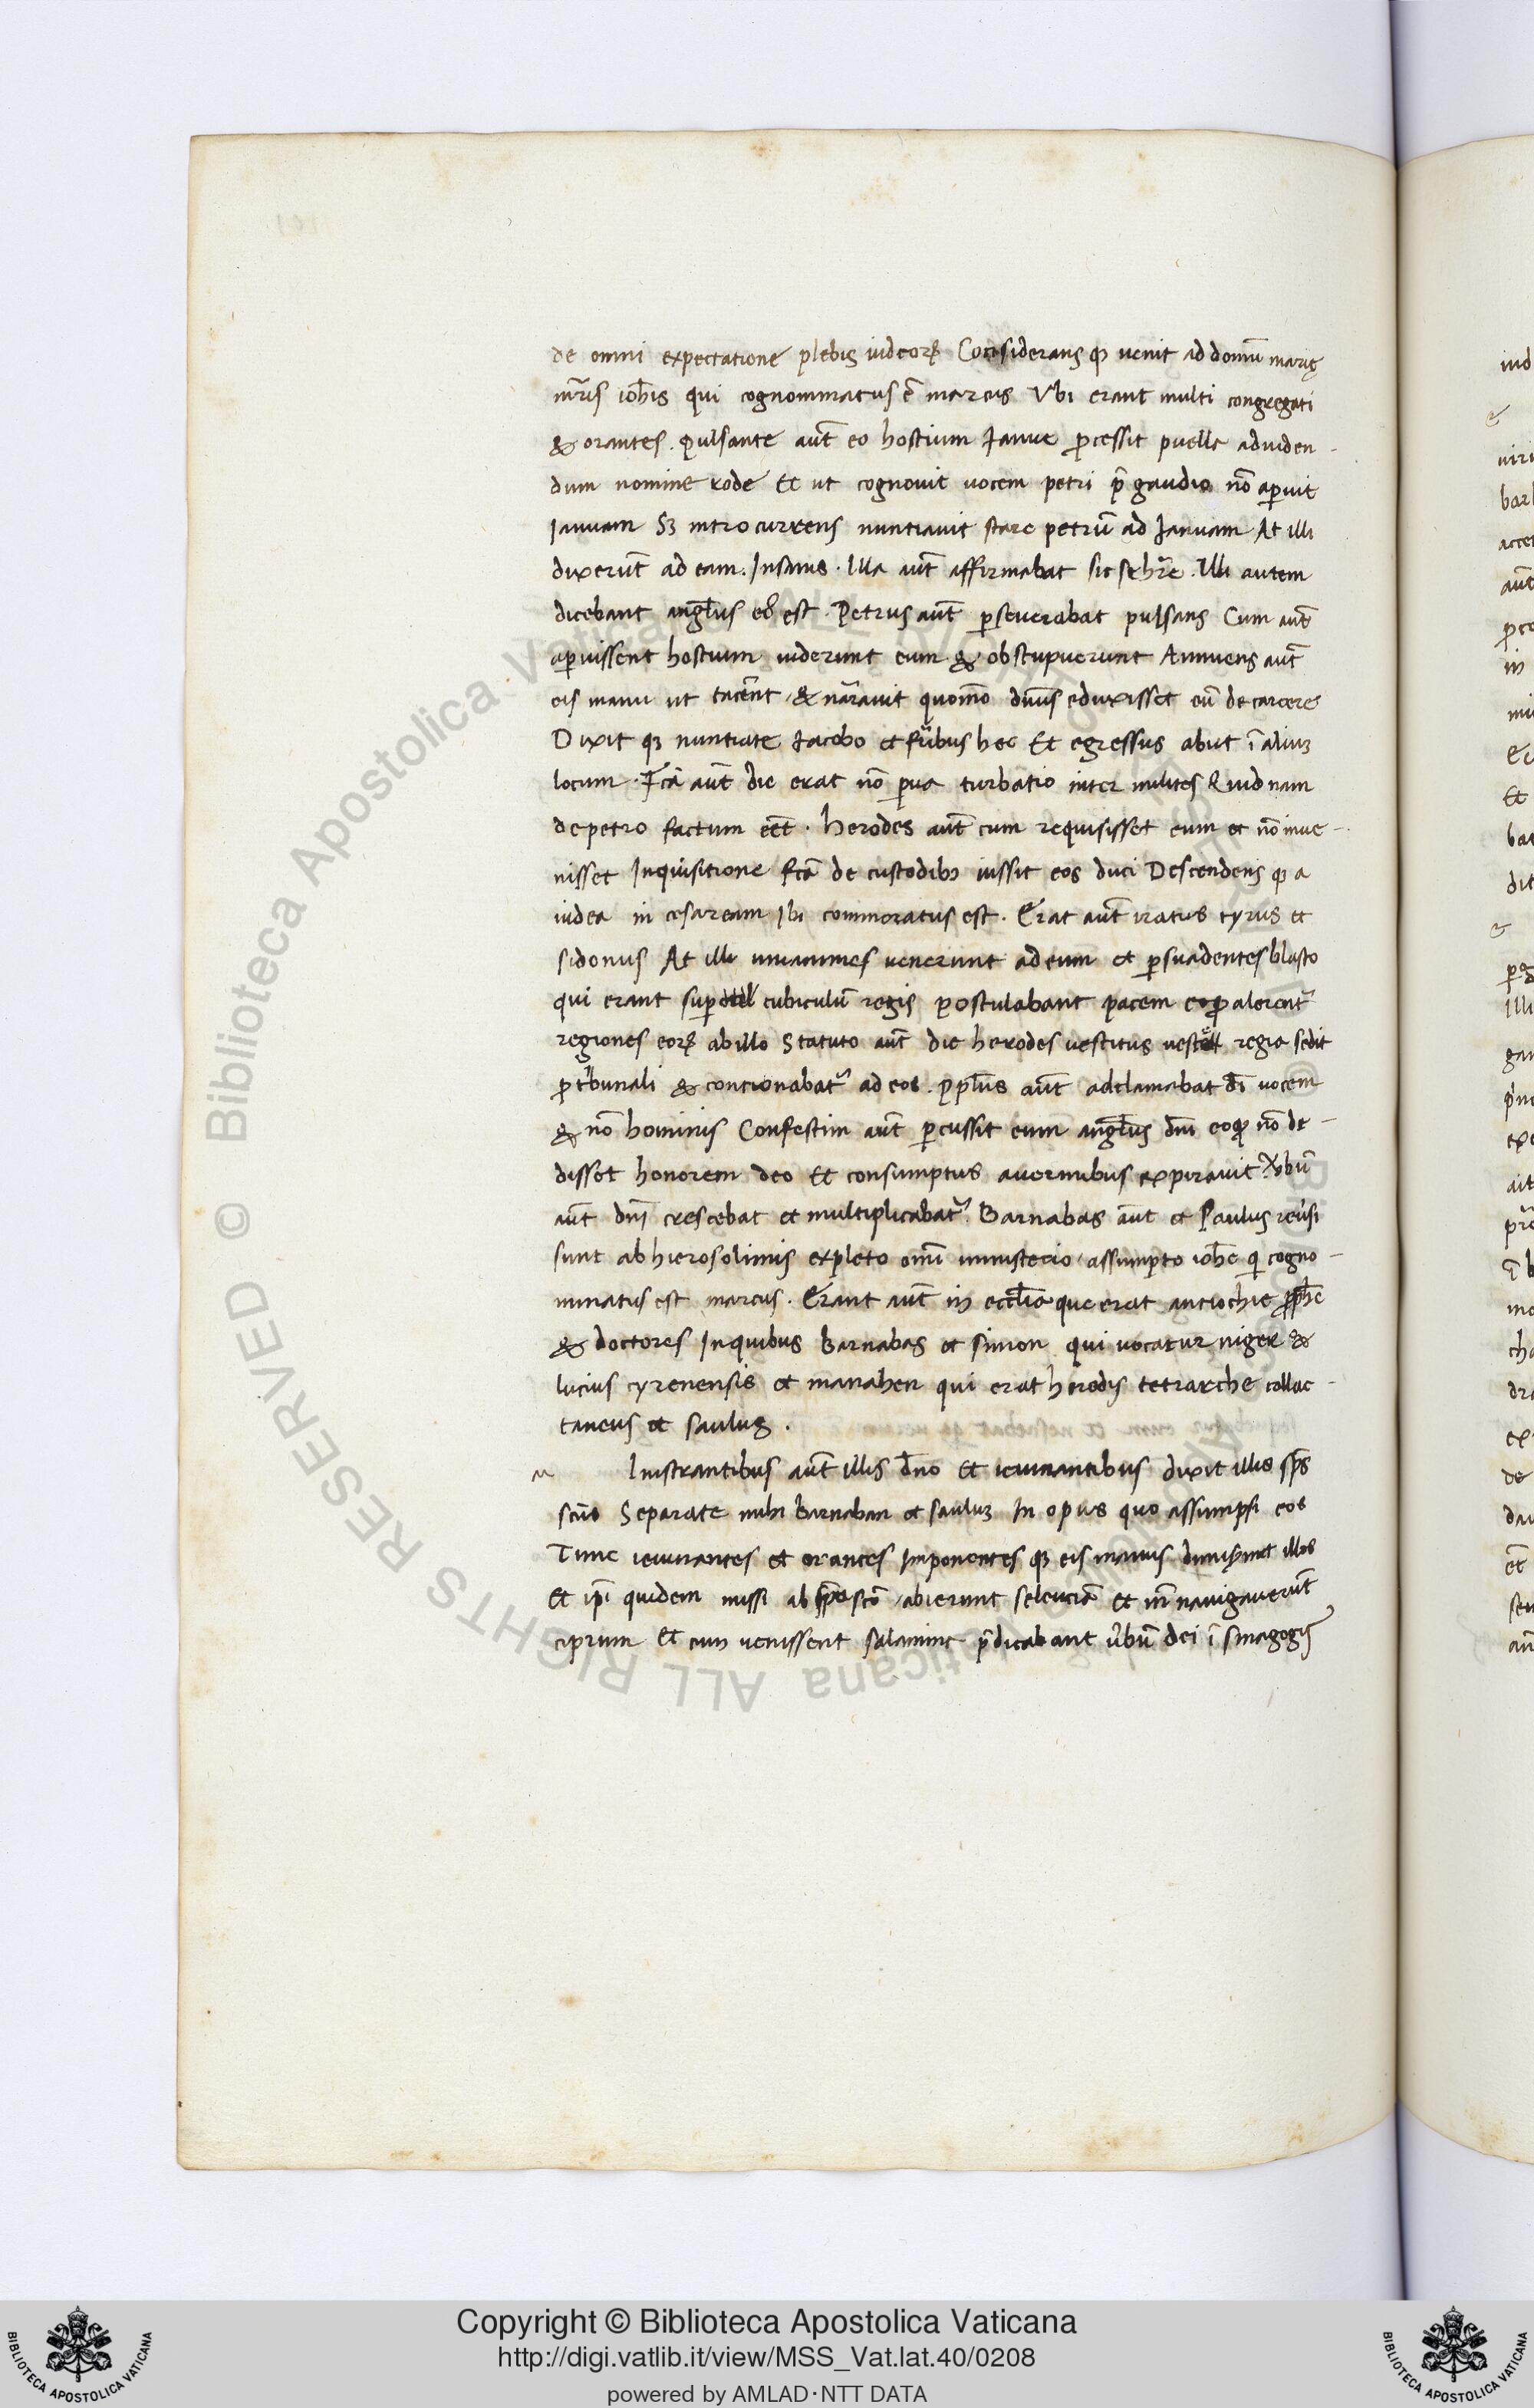 de omni expectatione plebis iudeoꝝ Considerans qꝫ venit ad domū marię
mr̄is ioħis qui cognominatus ē marcus Vbi erant multi congregati
& orantes. Pulsante aut̄ eo hostium Ianue ꝓcessit puella ad uiden-
dum nomine rode Et ut cognouit uocem petri p̄ gaudio nō aꝑuit
Ianuam Sꝫ introcurrens nuntiauit stare petrū ad Ianuam At illi
dixerūt ad eam. Insanis. Illa aut̄ affirmabat sic se hr̄e. Illi autem
dicebant angl̄us ei᷒ est. Petrus aut̄ ꝑseuerabat pulsans Cum aut̄
aꝑuissent hostium uiderunt eum & obstupuerunt Annuens aut̄
eis manu ut tacer̄nt & nar̄rauit quom̄o dn̄us eduxisset eū de carcere
Dixit qꝫ nuntiate Iacobo et fr̄ibus hec Et egressus abiit ī aliuꝫ
locum. Fc̄a aut̄ die erat nō ꝑua turbatio inter milites Quid nam
de petro factum eēt. herodes aut̄ cum requisisset eum et nō inue-
nisset Inquisitione fc̄a de custodibꝫ iussit eos duci Descendens qꝫ a
iudea in cesaream Ibi commoratus est. Erat aut̄ iratus tyriis et
sidoniis At illi unanimes uenerunt ad eum et ꝑsuadentes blasto
qui erant suꝑ cubiculū regis postulabant pacem eo qꝫ alerent᷑
regiones eoꝝ ab illo Statuto aut̄ die herodes uestitus ueste regia sedit
ꝓ tⁱbunali & contionabat᷑ ad eos. Ppl̄us aut̄ adclamabat dī uocem
& nō hominis Confestim aut̄ ꝑcussit eum angl̄us dnī eo qꝫ nō de-
disset honorem deo Et consumptus a uermibus expirauit. Vbū
aut̄ dnī crescebat et multiplicabat᷑. Barnabas aut̄ et Paulus reūsi
sunt ab hierosolimis expleto omī ministerio assumpto ioħe qi cogno-
minatus est marcus. Erant aut̄ in eccl̄ia que erat antiochie ꝓpħe
& doctores In quibus Barnabas et simon qui uocatur niger &
lucius cyrenensis et manahen qui erat herodis tetrarche collac-
taneus et saulus.
m Inistrantibus aut̄ illis dn̄o Et ieiunantibus dixit illis sp̄s
scūs Separate mihi Barnaban et sauluꝫ In opus quo assumpsi eos
Tunc ieiunantes et orantes Imponentes qꝫ eis manus dimisernt illos
Et ipī quidem missi ab sp̄u sctō abierunt seleuciā et in̄ nauigauerūt
ciprum Et cum uenissent salamine p̄dicabant ūbū dei ī sinagogis
iud
&
uiri
barb
accer
aut̄
ꝓco
in
Et
ba
dit
&
Illi
gan
ait
cha
dra
de
dau
eēt
Biblioteca Apostolica Vaticana ALL RIGHTS RESERVED ©
Copyright © Biblioteca Apostolica Vaticana
http://digi.vatlib.it/view/MSS_Vat.lat.40/0208
powered by AMLAD·NTT DATA
BIBLIOTECA APOSTOLICA VATICANA
BIBLIOTECA APOSTOLICA VATICANA